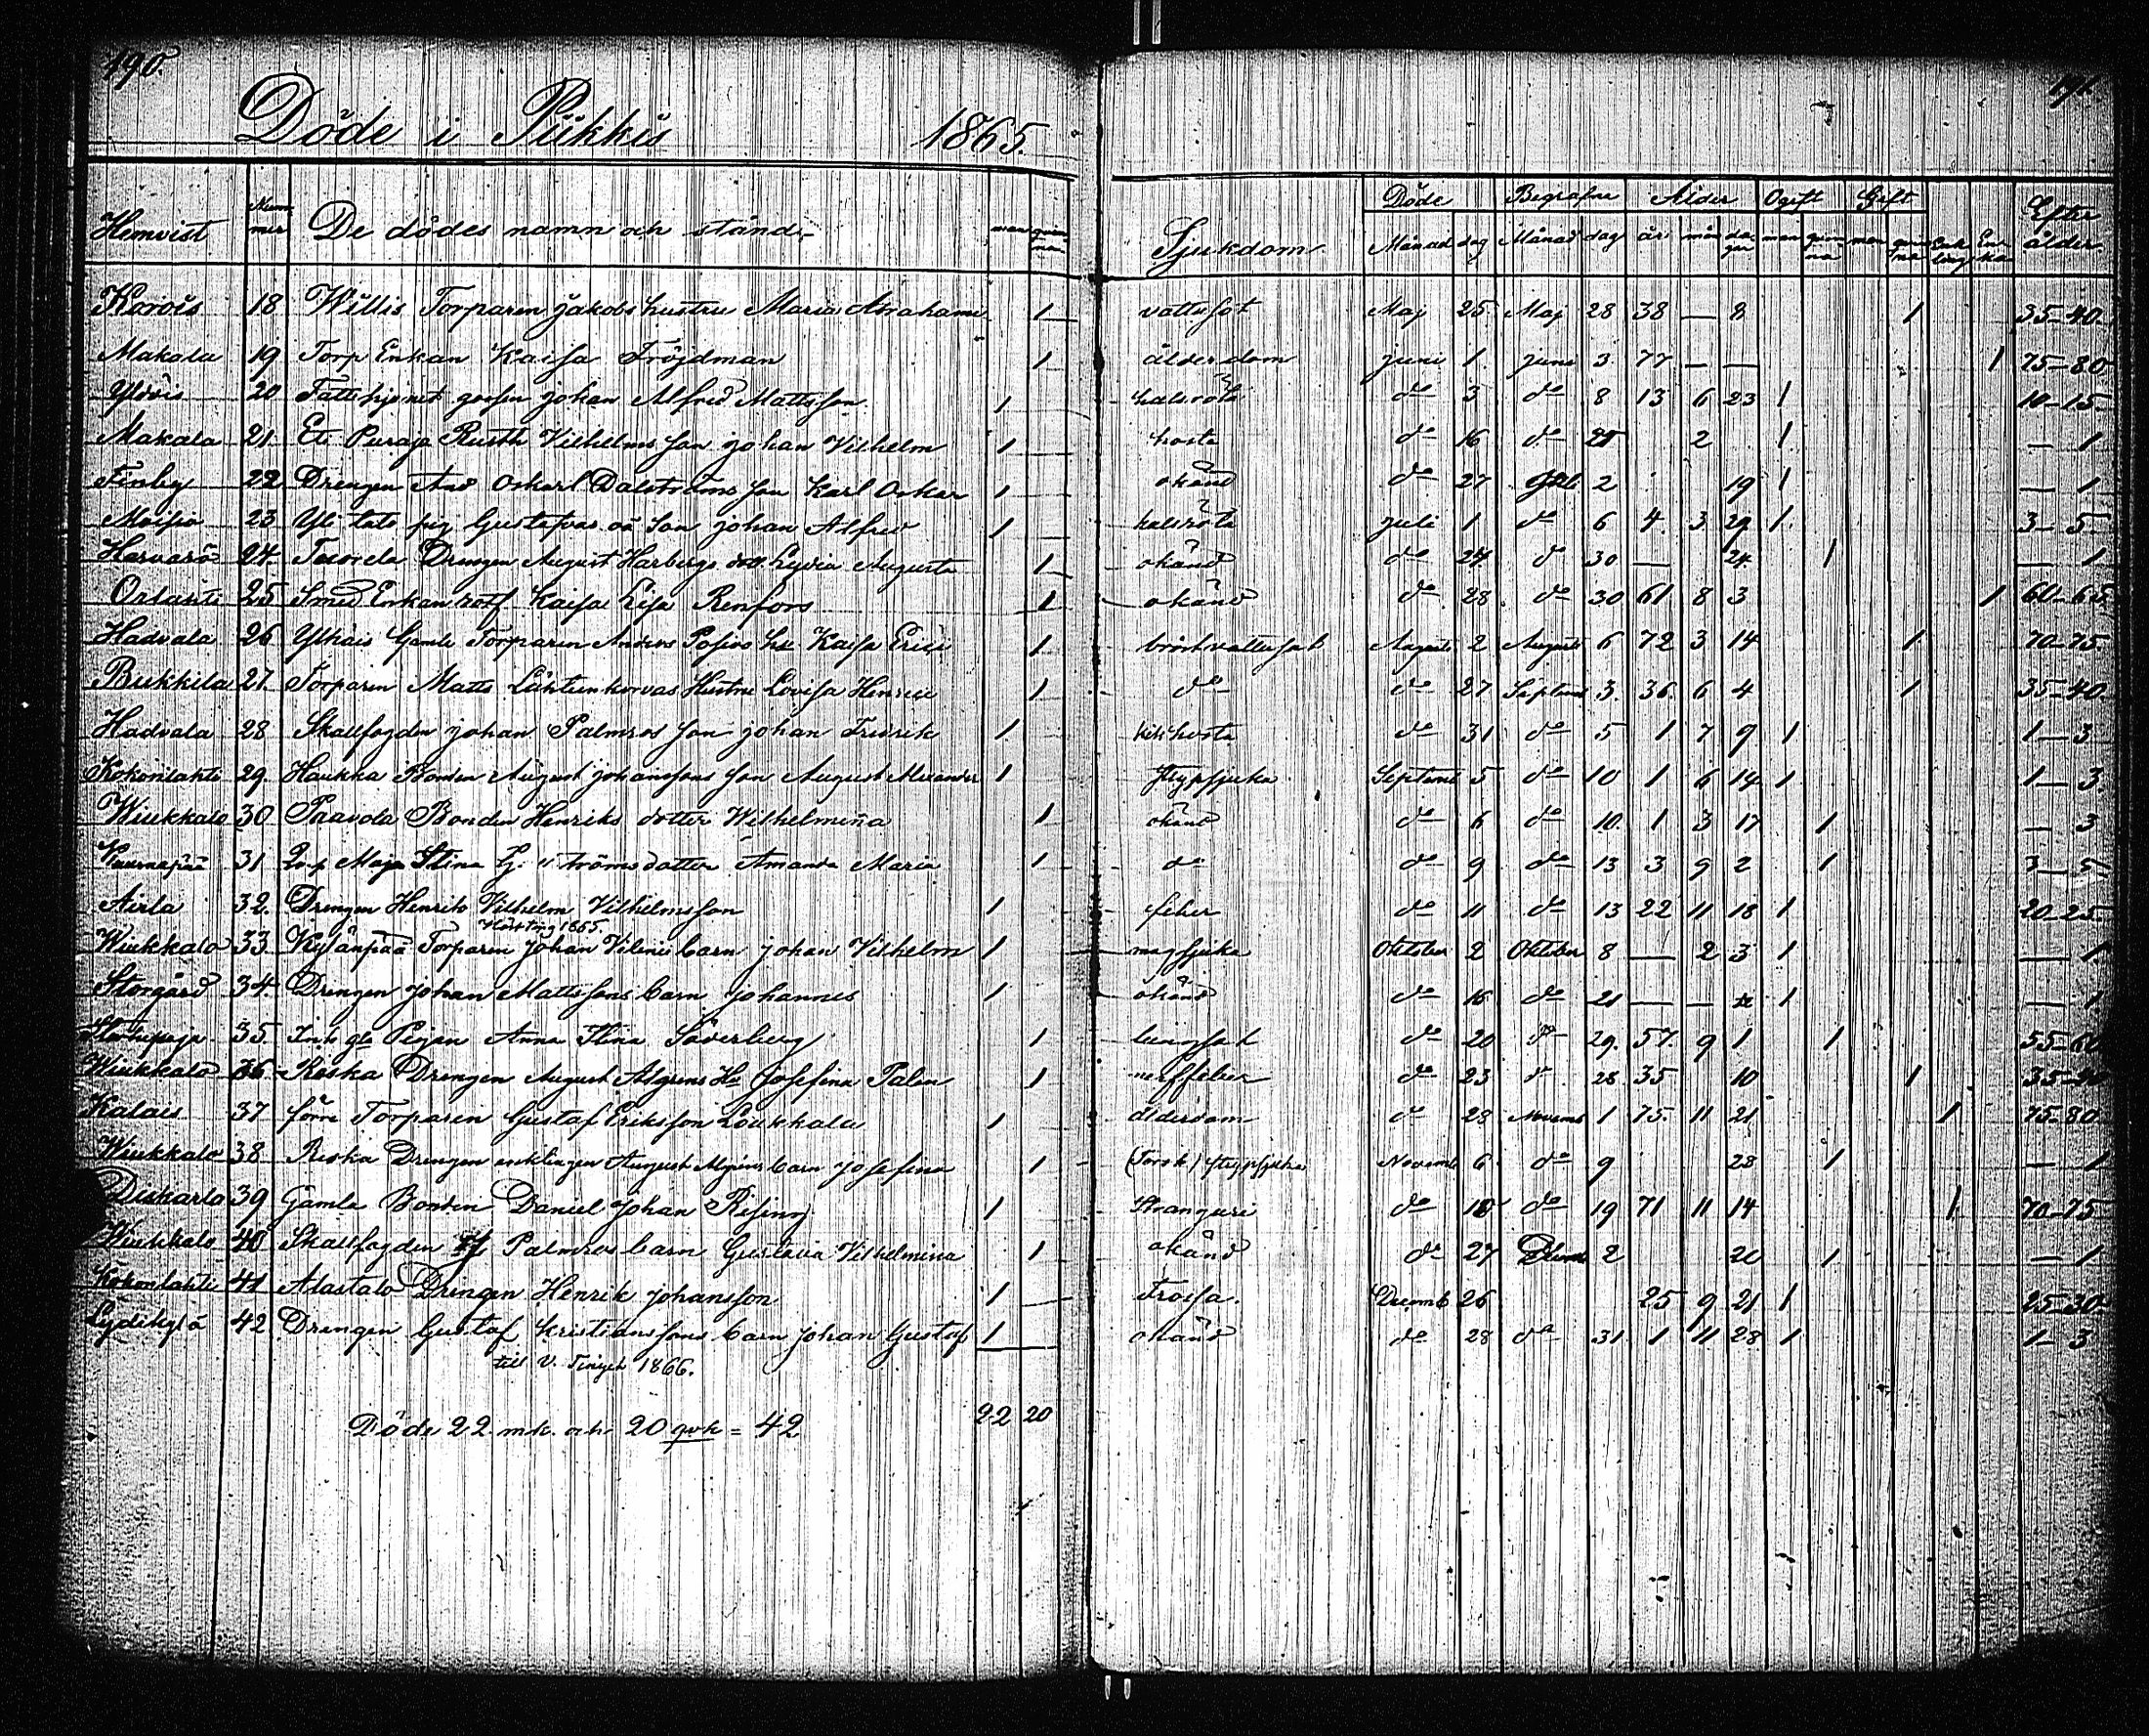 190.
191.
Döde i Piikkis 1865.
Hemvist Nummer De dödes namn och stånd. man qvinna Sjukdom. Döde Månad dag Begrafne Månad dag Ålder år mån dagar Ogift man qvinna Gift man qvinna Enkling Enka Efter ålder
Karvois 18 Willis Torparen Jakobs hustru Maria Abrahams 1 vattusot Maj 25 Maj 28 38 — 8 1 35–40
Makala 19 Torp Enkan Kaisa Fröjdman 1 ålderdom juni 1. juni 3. 77 — — 1 75–80
Ylöris 20 Fattighjonet gossen johan Alfred Mattsson 1 halsröta do 3 do 8 13 6 23 1 10–15.
Makala 21. Et. Puraja Rusth Vilhelms son johan Vilhelm 1 hosta do 16 do 25 2 1. — 1
Finby 22 Drengen And Oskarl Dalströms son Karl Oskar 1 okänd do 27 Juli 2 19 1 — 1
Moisio 23 Yli tato pig Gustafvas oä son johan Alfred 1 halsröta juli 1 do 6 4. 3 29 1. 3–5
Harvarö 24. Tuorela Drengen August Harbergs dott. Lydia Augusta 1 okänd do 24 do 30 — 24 1 — 1
25 Smed Enkan rotf Kaisa Lisa Renfors 1 okänd do 28 do 30 61 8 3 1 60–65
Hadvala 26 Gamle Torparen Anders hu Kaisa Erici 1 bröstvattusot Augusti 2 Augusti 6 72 3 14 1 70–75.
Bukkila 27. Torparen Matts Lähteenkorvas Hustru Lovisa Henrici 1 do do 27 Septemb 3. 36. 6 4 1 35–40
Hadvala 28 Skallfogden johan Palmros son johan Fredrik 1 kikhosta do 31 do 5 1 7 9 1 1–3
Kokonlahti 29. Haukka Bonden August johanssons son August Alexander 1 strypsjuka Septemb 5 do 10 1 6 14 1 1–3.
Wiukkalo 30 Paavola Bonden Henriks dotter Wilhelmina 1 okänd do 6 do 10. 1 3 17 1 — 3
31 Maja Stina dotter Amanda Maria 1 do do 9 do 13 3 9 2 1 3–5
Airla 32. Drengen Henrik Vilhelm Vilhelmsson 1 feber do 11 do 13 22 11 18 1 20–25
Hösttng 1865.
Wiukkalo 33 Kylänpää Torparen Johan Vilenii barn johan Vilhelm 1 magsjuka Oktober 2 Oktober 8 — 2 3 1 — 1
Storgård 34. Drengen johan Mattssons barn johannes 1 okänd do 16 do 21 — — 1 — 1
35. Inh gla Pigan Anna Stina Söderberg 1 lungsot do 20 do 29. 57. 9 1 1 55–60
Wiukkalo 36. Roska Drengen August Algrens Hu Josefina Palen 1 nerffeber do 23 do 28 35 10 1 35–40
Kalais 37 före Torparen Gustaf Eriksson Loukkala 1 ålderdom do 28 Novemb 1 75. 11 21 1 75–80
Wiukkalo 38. Roska Drengen enklingen August Algrens barn Josefina 1 (Torsk) strypsjuka Novemb 6 do 9 28 1 — 1
Diskarla 39 Gamle Bonden Daniel Johan Rising 1 Stranguri do 10 do 19 71 11 14 1 70–75
Wiukkalo 40 Skallfogden Palmros barn Gustava Vilhelmina 1 okänd do 27 2 20 1 — 1
Kokonlahti 41 Alastalo Drengen Henrik johansson 1 Frossa. Decemb 26 25 9 21 1 25–30
42 Drengen Gustaf Kristianssons barn johan Gustaf 1 okänd do 28 do 31 1 11 28 1 1–3
till V. Tinget 1866.
22 20
Döde 22. mk. och 20 qvk = 42